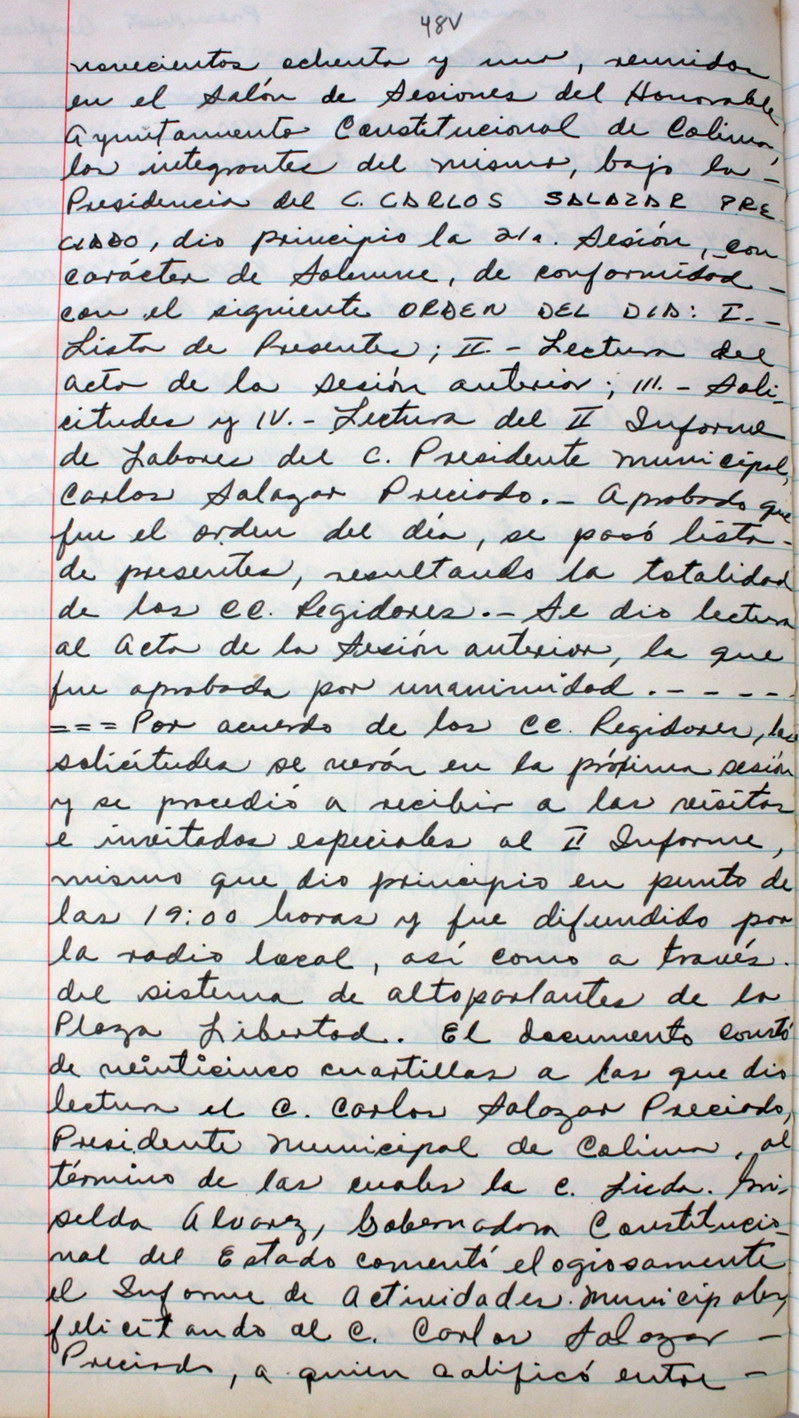 48V
novecientos ochenta y uno, reunidos
en el Salón de Sesiones del Honorable
Ayuntamiento Constitucional de Colima,
los integrantes del mismo, bajo la -
Presidencia del C. CARLOS SALAZAR PRE
CIADO, dio principio la 21a. Sesión, con
carácter de Solemne, de conformidad -
con el siguiente ORDEN DEL DIA: I.-
Lista de Presentes; II.- Lectura del
acta de la sesión anterior; III.- Soli-
citudes y IV.- Lectura del II Informe
de Labores del C. Presidente Municipal,
Carlos Salazar Preciado.- Aprobado que
fue el orden del día, se pasó lista -
de presentes, resultando la totalidad
de los CC. Regidores.- Se dio lectura
al Acta de la Sesión anterior, la que
fue aprobada por unanimidad.- - - - -
=== Por acuerdo de los CC. Regidores, las
solicitudes se verán en la próxima sesión
y se procedió a recibir a las visitas
e invitados especiales al II Informe,
mismo que dio principio en punto de
las 19:00 horas y fue difundido por
la radio local, así como a través.
del sistema de altoparlantes de la
Plaza Libertad. El documento constó
de veinticinco cuartillas a las que dio
lectura el C. Carlos Salazar Preciado,
Presidente Municipal de Colima, al
término de las cuales la C. Licda. Gri-
selda Alvarez, Gobernadora Constitucio-
nal del Estado comentó elogiosamente
el Informe de Actividades Municipales
felicitando al C. Carlos Salazar -
Preciado, a quien calificó entre -